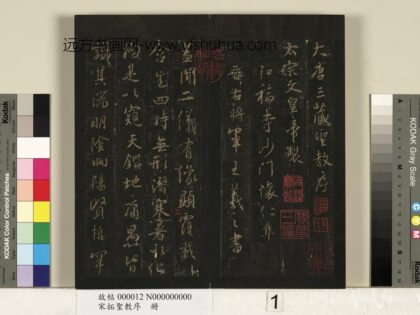 远方书画网-www.yfshuhua.com
大唐三藏聖教序
太宗文皇帝製
弘福寺沙門懷仁集
晉右將軍王羲之書
蓋聞二儀有像顯覆載以
含生四時無形潛寒暑以化
物是以窺天鑑地庸愚皆
識其端明陰洞陽賢哲罕
故帖 000012 N000000000
宋拓聖教序 冊
1
Kodak
Color Control Patches
KODAK Gray Scale
Kodak